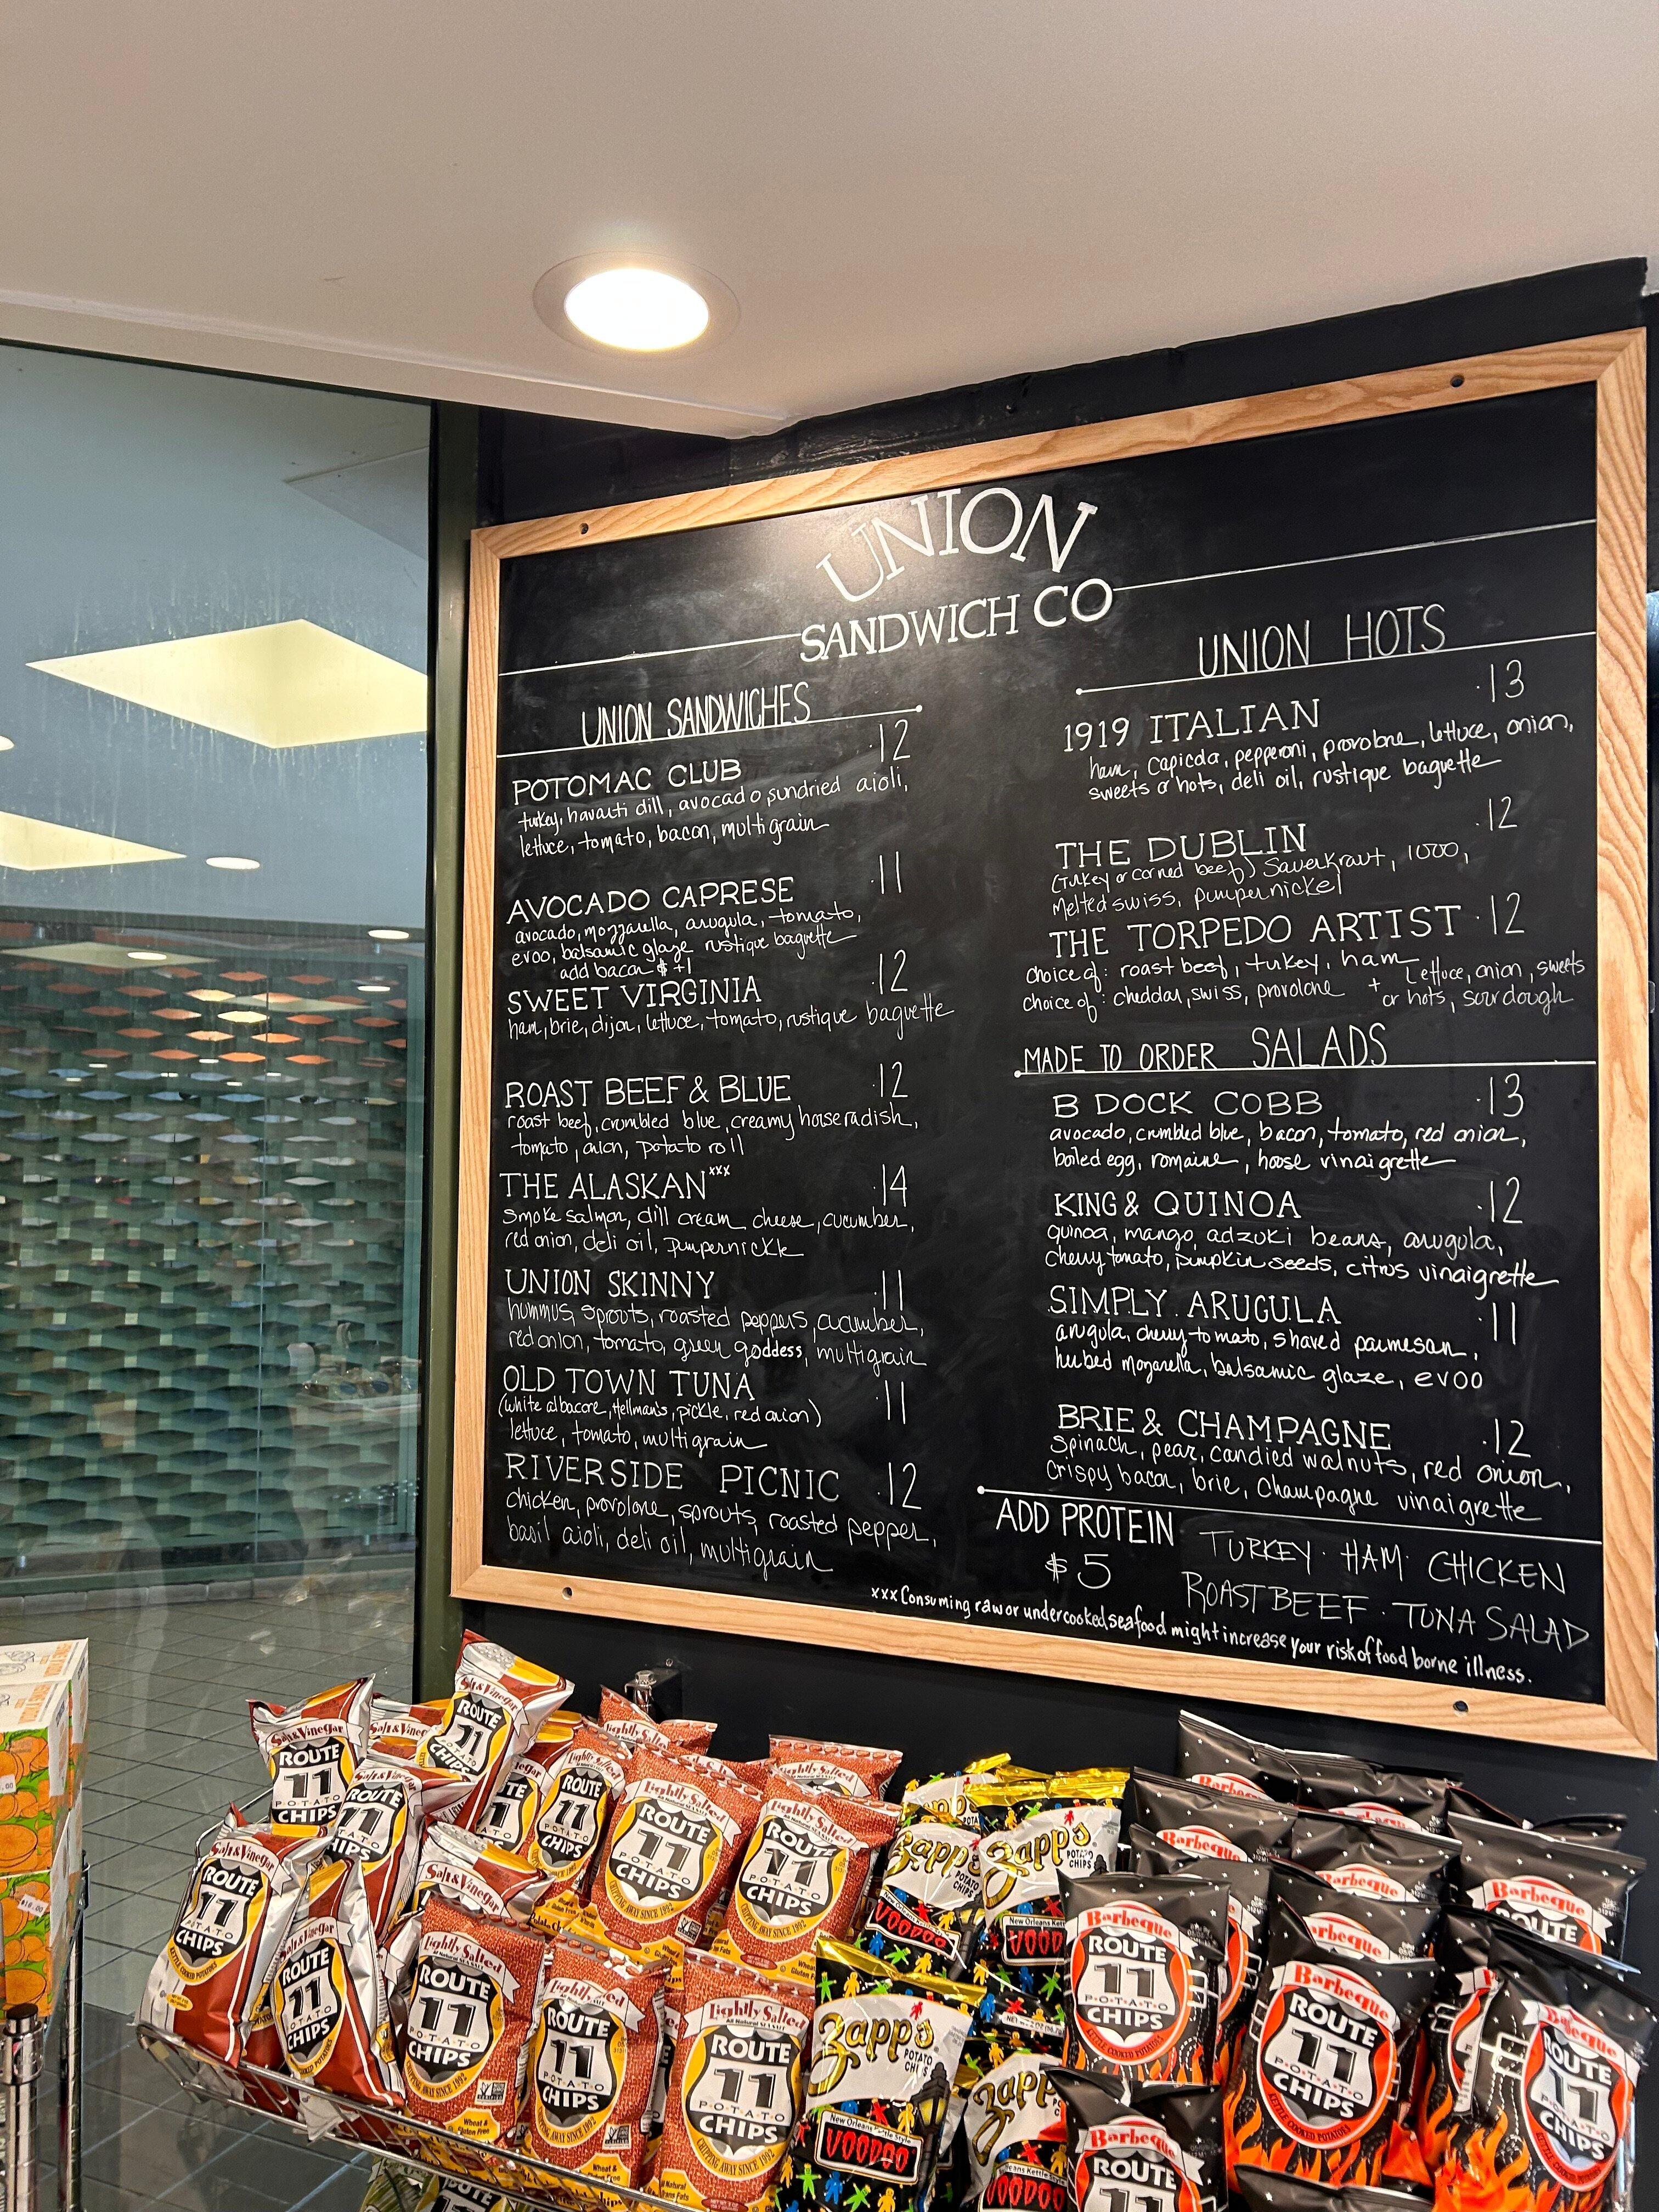 UNION
SANDWICH CO
UNION SANDWICHES
POTOMAC CLUB ·12
turkey, havarti dill, avocado, sundried aioli,
lettuce, tomato, bacon, multigrain
AVOCADO CAPRESE ·11
avocado, mozzarella, arugula, tomato,
evoo, balsamic glaze rustique baguette
add bacon $ +1
SWEET VIRGINIA ·12
ham, brie, dijon, lettuce, tomato, rustique baguette
ROAST BEEF & BLUE ·12
roast beef, crumbled blue, creamy horseradish,
tomato, onion, potato roll
THE ALASKAN xxx ·14
smoke salmon, dill cream cheese, cucumber,
red onion, deli oil, pumpernickle
UNION SKINNY ·11
hummus, sprouts, roasted peppers, cucumber,
red onion, tomato, green goddess, multigrain
OLD TOWN TUNA ·11
(white albacore, Hellman's, pickle, red onion)
lettuce, tomato, multigrain
RIVERSIDE PICNIC ·12
chicken, provolone, sprouts, roasted pepper,
basil aioli, deli oil, multigrain
UNION HOTS
1919 ITALIAN ·13
ham, capicola, pepperoni, provolone, lettuce, onion,
sweets or hots, deli oil, rustique baguette
THE DUBLIN ·12
(turkey or corned beef) Sauerkraut, 1000,
Melted swiss, pumpernickel
THE TORPEDO ARTIST ·12
choice of: roast beef, turkey, ham
choice of: cheddar, swiss, provolone
+ lettuce, onion, sweets
or hots, sourdough
MADE TO ORDER SALADS
B DOCK COBB ·13
avocado, crumbled blue, bacon, tomato, red onion,
boiled egg, romaine, house vinaigrette
KING & QUINOA ·12
quinoa, mango, adzuki beans, arugula,
cherry tomato, pumpkin seeds, citrus vinaigrette
SIMPLY ARUGULA ·11
arugula, cherry tomato, shaved parmesan,
herbed mozarella, balsamic glaze, evoo
BRIE & CHAMPAGNE ·12
Spinach, pear, candied walnuts, red onion,
crispy bacon, brie, Champagne vinaigrette
ADD PROTEIN
$5
TURKEY · HAM · CHICKEN
ROAST BEEF · TUNA SALAD
xxx Consuming raw or undercooked seafood might increase your risk of food borne illness.
Salt & Vinegar
ROUTE
11
POTATO
CHIPS
Lightly Salted
ROUTE
11
POTATO
CHIPS
CHIPPING AWAY SINCE 1992
Wheat &
Gluten Free
Zapp's
POTATO
CHIPS
New Orleans Kettle Style
VOODOO
Barbeque
ROUTE
11
POTATO
CHIPS
KETTLE COOKED POTATOES